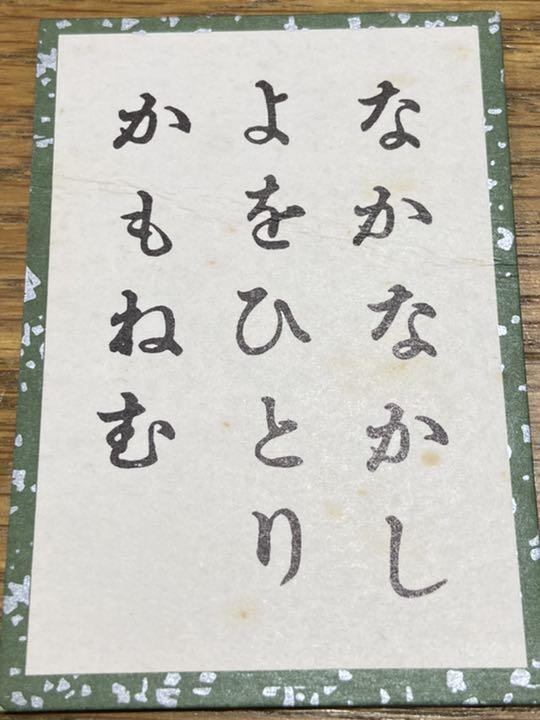 なかなかし
よをひとり
かもねむ